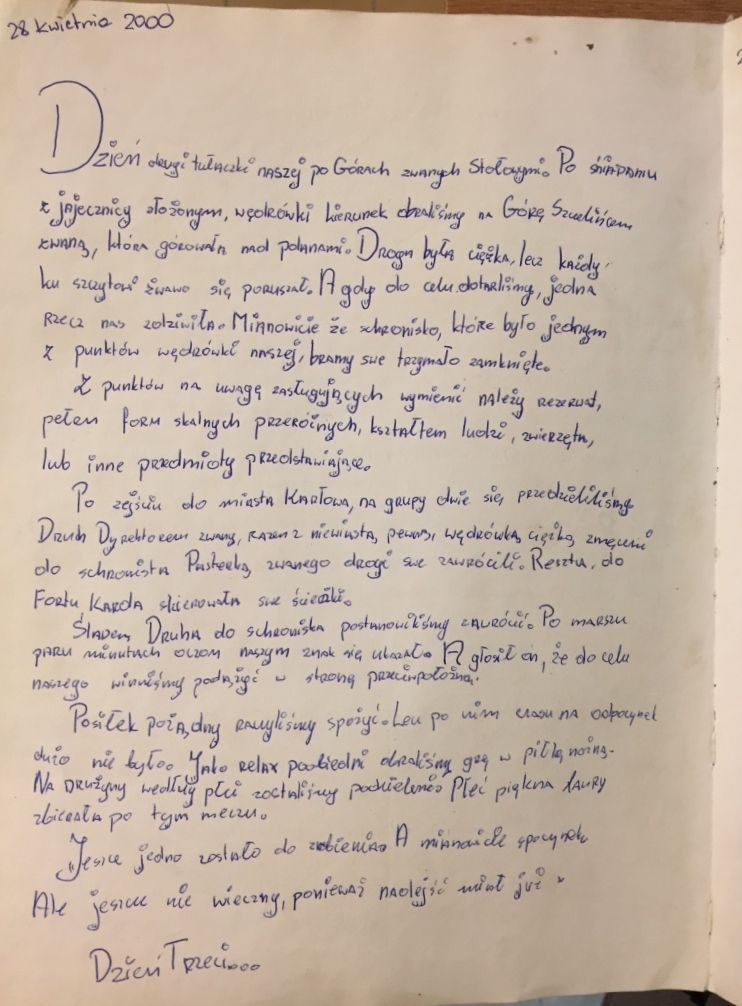 28 kwietnia 2000
Dzień drugi tułaczki naszej po Górach zwanych Stołowymi. Po śniadaniu
z jajecznicy złożonym, wędrówki kierunek obraliśmy na Górę Szczelińcem
zwaną, która górowała nad polanami. Droga była ciężka, lecz każdy
ku szczytowi żwawo się poruszał. A gdy do celu dotarliśmy, jedna
rzecz nas zdziwiła. Mianowicie że schronisko, które było jednym
z punktów wędrówki naszej, bramy swe trzymało zamknięte.
Z punktów na uwagę zasługujących wymienić należy rezerwat,
pełen form skalnych przeróżnych, kształtem ludzi, zwierzęta,
lub inne przedmioty przedstawiające.
Po zejściu do miasta Karłowa, na grupy dwie się przedzieliliśmy
Druh Dyrektorem zwany, razem z niewiastą, pewną, wędrówką ciężką zmęczeni
do schroniska Pasterką zwanego drogi swe zawrócili. Reszta, do
Fortu Karola skierowała swe ścieżki.
Śladem Druha do schroniska postanowiliśmy zawrócić. Po marszu
paru minutach oczom naszym znak się ukazał. A głosił on, że do celu
naszego winniśmy podążyć w stronę przeciwpołożną.
Posiłek pożądny raczyliśmy spożyć. Lecz po nim czasu na odpoczynek
dużo nie było. Jako relax poobiedni obraliśmy grę w piłkę nożną.
Na drużyny według płci zostaliśmy podzieleni. Płeć piękna laury
zbierała po tym meczu.
Jeszcze jedno zostało do zrobienia. A mianowicie spoczynek
Ale jeszcze nie wieczny, ponieważ nadejść miał już
Dzień Trzeci...